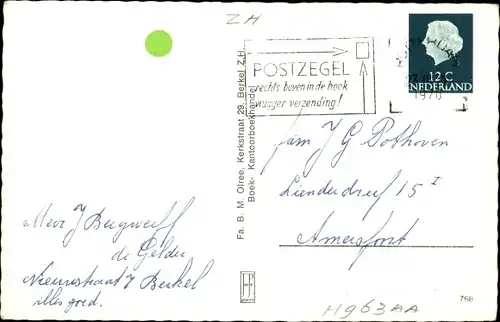 ZH
POSTZEGEL
rechts boven in de hoek
vlugger verzending!
1970
12 C
NEDERLAND
Fa. B. M. Olree, Kerkstraat 29, Berkel Z.H.
Boek- Kantoorboekhandel
fam J G Pothoven
Lienderdreef 15 I
Amersfoort
Mevr J Bergwerff
de Gelder
Nieuwstraat 7 Berkel
alles goed.
768
Hg63AA